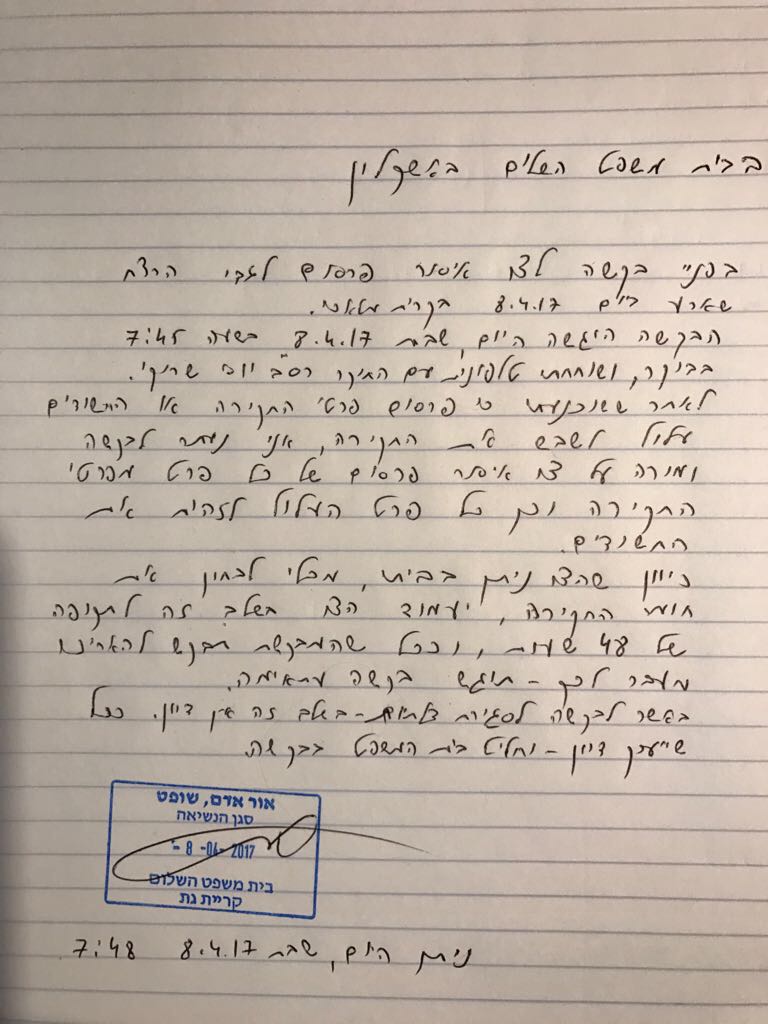 בבית משפט השלום באשקלון
בפניי בקשה לצו איסור פרסום לגבי הרצח
שארע ביום 8.4.17 בקרית מלאכי.
הבקשה הוגשה היום, שבת 8.4.17 בשעה 7:45
בבוקר, ושוחחתי טלפונית עם החוקר רס"ב יוסי שריקי.
לאחר ששוכנעתי כי פרסום פרטי החקירה או החשודים
עלול לשבש את החקירה, אני נעתר לבקשה
ומורה על צו איסור פרסום של כל פרט מפרטי
החקירה וכן כל פרט העלול לזהות את
החשודים.
כיוון שהצו ניתן בביתי, מבלי לבחון את
חומר החקירה, יעמוד הצו בשלב זה לתקופה
של 48 שעות, וככל שהמבקשת תבקש להאריכו
מעבר לכך - תוגש בקשה מתאימה.
באשר לבקשה לסגירת דלתיים - בשלב זה אין דיון. ככל
שייערך דיון - יחליט בית המשפט בבקשה.
אור אדם, שופט
סגן הנשיאה
- 8 -04- 2017
בית משפט השלום
קריית גת
ניתן היום, שבת 8.4.17 7:48